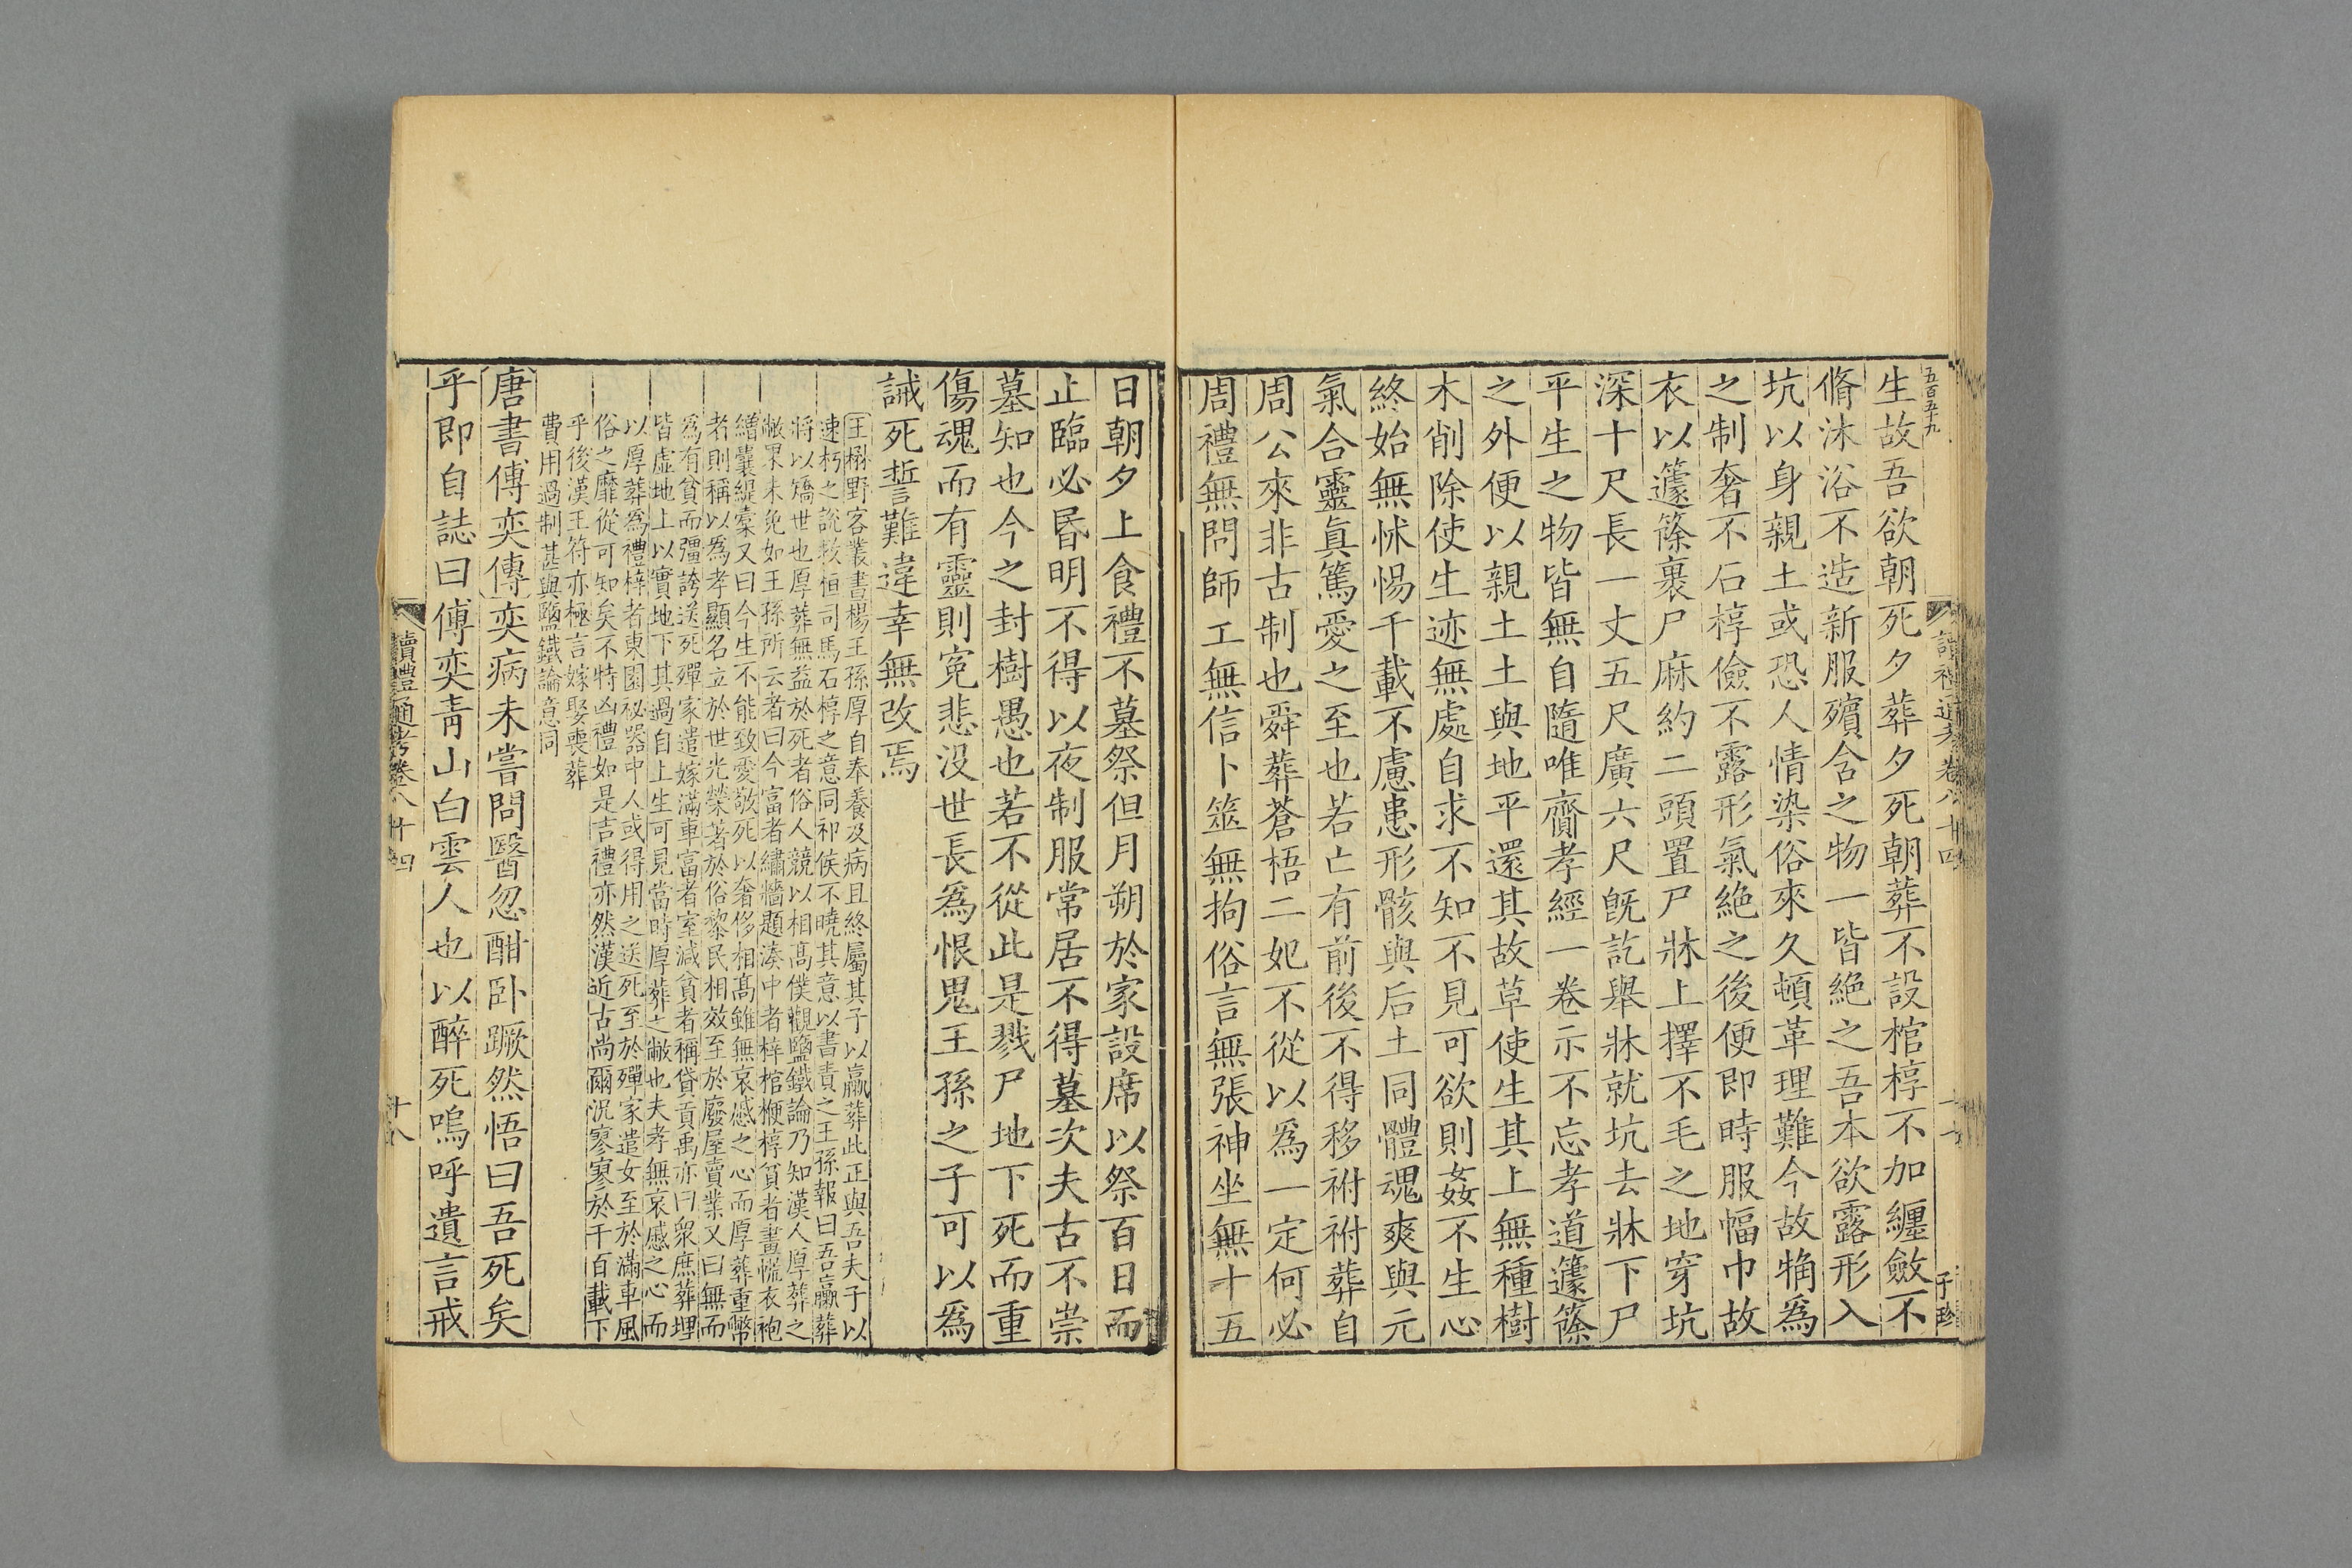 五百五十九
生故吾欲朝死夕葬夕死朝葬不設棺椁不加纏斂不
脩沐浴不造新服殯含之物一皆絶之吾本欲露形入
坑以身親土或恐人情染俗來久頓革理難今故觕爲
之制奢不石椁儉不露形氣絶之後便即時服幅巾故
衣以籧篨裹尸麻約二頭置尸牀上擇不毛之地穿坑
深十尺長一丈五尺廣六尺旣訖舉牀就坑去牀下尸
平生之物皆無自隨唯齎孝經一卷示不忘孝道籧篨
之外便以親土土與地平還其故草使生其上無種樹
木削除使生迹無處自求不知不見可欲則姦不生心
終始無怵惕千載不慮患形骸與后土同體魂爽與元
氣合靈眞篤愛之至也若亡有前後不得移祔祔葬自
周公來非古制也舜葬蒼梧二妃不從以爲一定何必
周禮無問師工無信卜筮無拘俗言無張神坐無十五
日朝夕上食禮不墓祭但月朔於家設席以祭百日而
止臨必昬明不得以夜制服常居不得墓次夫古不崇
墓知也今之封樹愚也若不從此是戮尸地下死而重
傷魂而有靈則寃悲没世長爲恨鬼王孫之子可以爲
誡死誓難違幸無改焉
王楙野客叢書楊王孫厚自奉養及病且終屬其子以臝葬此正與吾夫子以
速朽之說救恒司馬石椁之意同祁侯不曉其意以書責之王孫報曰吾臝葬
將以矯世也厚葬無益於死者俗人競以相高僕觀鹽鐵論乃知漢人厚葬之
敝果未免如王孫所云者曰今富者繡牆題湊中者梓棺楩椁貧者畫慌衣袍
繒囊緹橐又曰今生不能致愛敬死以奢侈相高雖無哀慼之心而厚葬重幣
者則稱以爲孝顯名立於世光榮著於俗黎民相效至於廢屋賣業又曰無而
爲有貧而彊誇送死殫家遣嫁滿車富者室減貧者稱貸貢禹亦曰衆庶葬埋
皆虚地上以實地下其過自上生可見當時厚葬之敝也夫孝無哀慼之心而
以厚葬爲禮梓者東園秘器中人或得用之送死至於殫家遣女至於滿車風
俗之靡從可知矣不特凶禮如是吉禮亦然漢近古尚爾況寥寥於千百載下
乎後漢王符亦極言嫁娶喪葬
費用過制甚與鹽鐵論意同
唐書傅奕傳奕病未嘗問醫忽酣卧蹶然悟曰吾死矣
乎即自誌曰傅奕青山白雲人也以醉死嗚呼遺言戒
讀禮通考卷八十四
十八